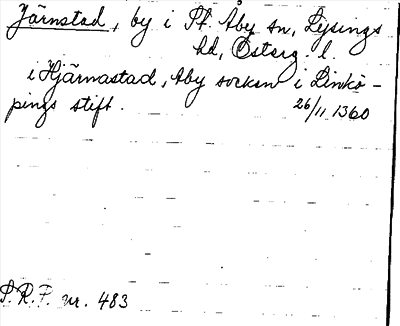 Järnstad, by i St. Åby sn, Lysings
hd, Österg. l.
i Hjärnastad, Aby socken i Linkö-
pings stift. 26/11 1360
S.R.P. nr. 483